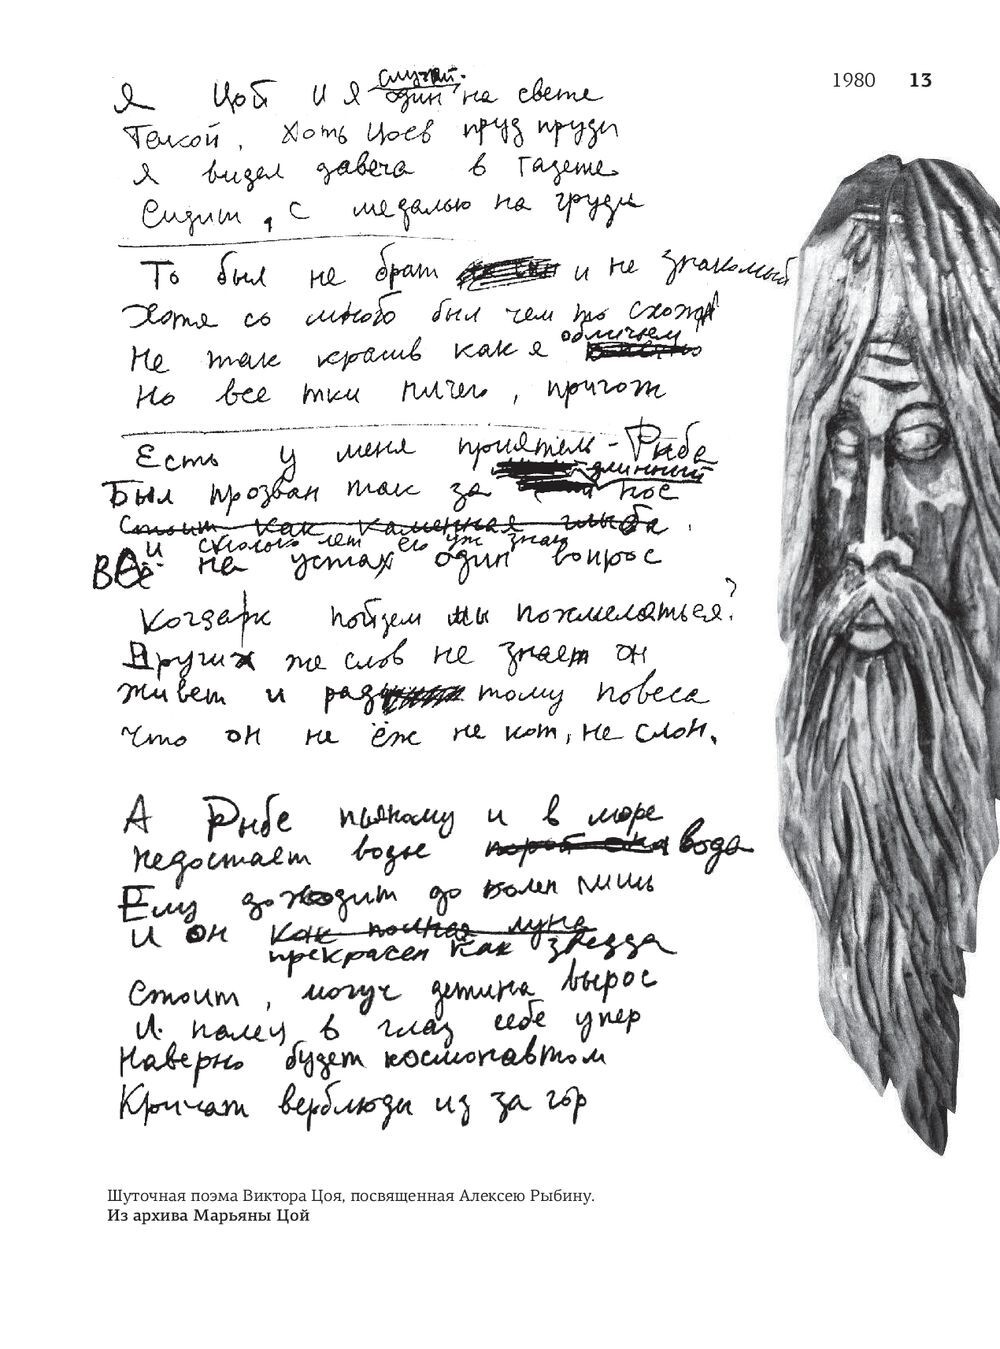 1980 13
случай.
Я Цой и я один на свете
Такой, хоть Цоев пруд пруди
Я видел давеча в газете
Сидит, с медалью на груди
То был не брат и не знакомый
Хотя со много был чем то схож
обличьем
Не так красив как я
Но все тки ничего, пригож
Есть у меня приятель - Рыба
длинный
Был прозван так за нос
Стоит как каменная глыба.
И сколько лет его уж знаю
Всё на устах один вопрос
Когдарк пойдем мы похмеляться?
Других же слов не знает он
Живет и рад тому повеса
Что он не ёж не кот, не слон.
А Рыбе пьяному и в море
Недостает воды вода
Ему доходит до колен лишь
И он как полная луна
прекрасен как звезда
Стоит, могуч детина вырос
И палец в глаз себе упер
Наверно будет космонавтом
Кричат верблюды из за гор
Шуточная поэма Виктора Цоя, посвященная Алексею Рыбину.
Из архива Марьяны Цой